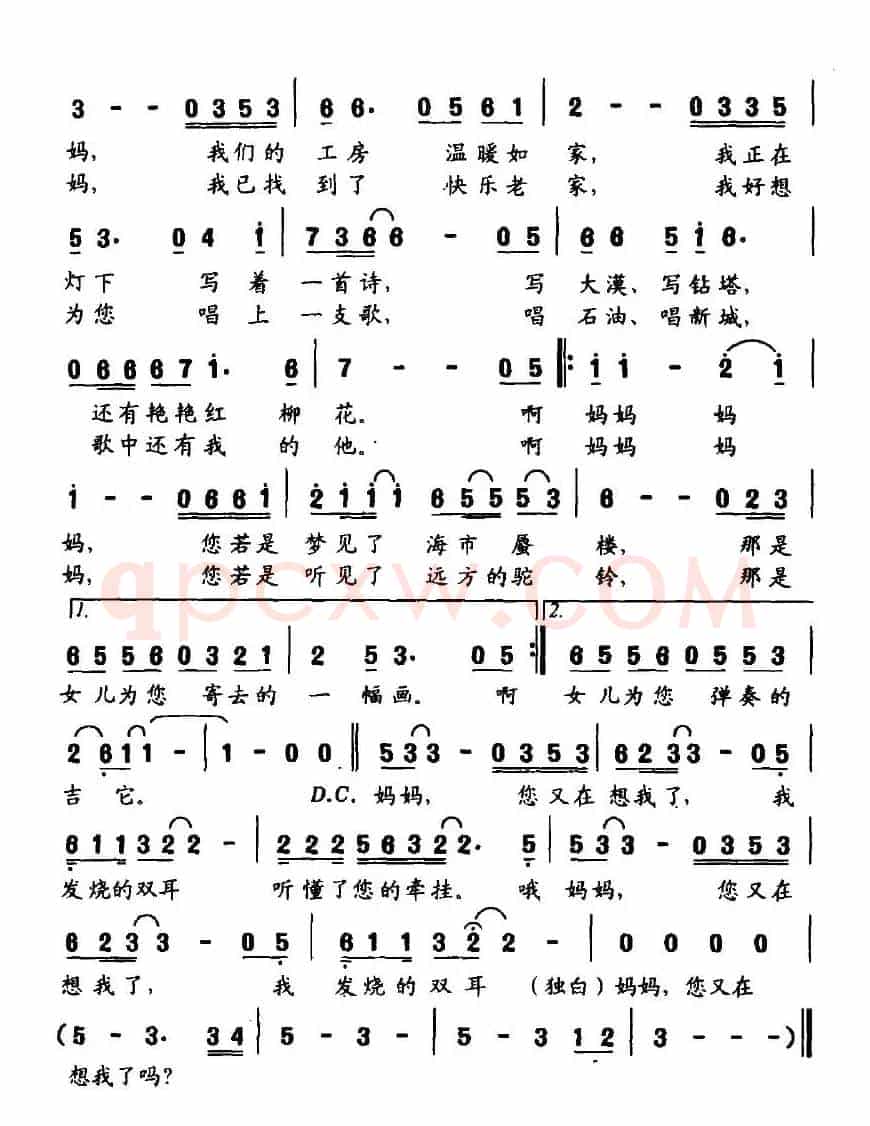 3 - - 0353 | 6 6. 0561 | 2 - - 0335 |
妈, 我们的 工房 温暖如 家, 我正在
妈, 我已找 到了 快乐老 家, 我好想
5 3. 0 4 i | 7366 - 05 | 66 5i6. |
灯下 写着 一首诗, 写 大漠、写钻塔,
为您 唱上 一支歌, 唱 石油、唱新城,
06667i. 6 | 7 - - 05 ‖: i i - 2 i |
还有艳艳红 柳 花。 啊 妈妈 妈
歌中还有我 的 他。 啊 妈妈 妈
i - - 066i | 2iii 65553 | 6 - - 023 |
妈, 您若是 梦见了 海市蜃 楼, 那是
妈, 您若是 听见了 远方的驼 铃, 那是
qpcxw.COM
1. 2.
65560321 | 2 53. 05 :‖ 65560553
女儿为您 寄去的 一 幅画。 啊 女儿为您 弹奏的
2 611 - | 1 - 0 0 ‖ 533 - 0353 | 6233 - 05
吉它。 D.C. 妈妈, 您又在 想我了, 我
611322 - | 2225632 2. 5 | 533 - 0353
发烧的双耳 听懂了您的牵挂。 哦 妈妈, 您又在
6233 - 05 | 611 322 - | 0 0 0 0
想我了, 我 发烧的双耳 （独白）妈妈,您又在
(5 - 3. 34 | 5 - 3 - | 5 - 3 12 | 3 - - -)‖
想我了吗?